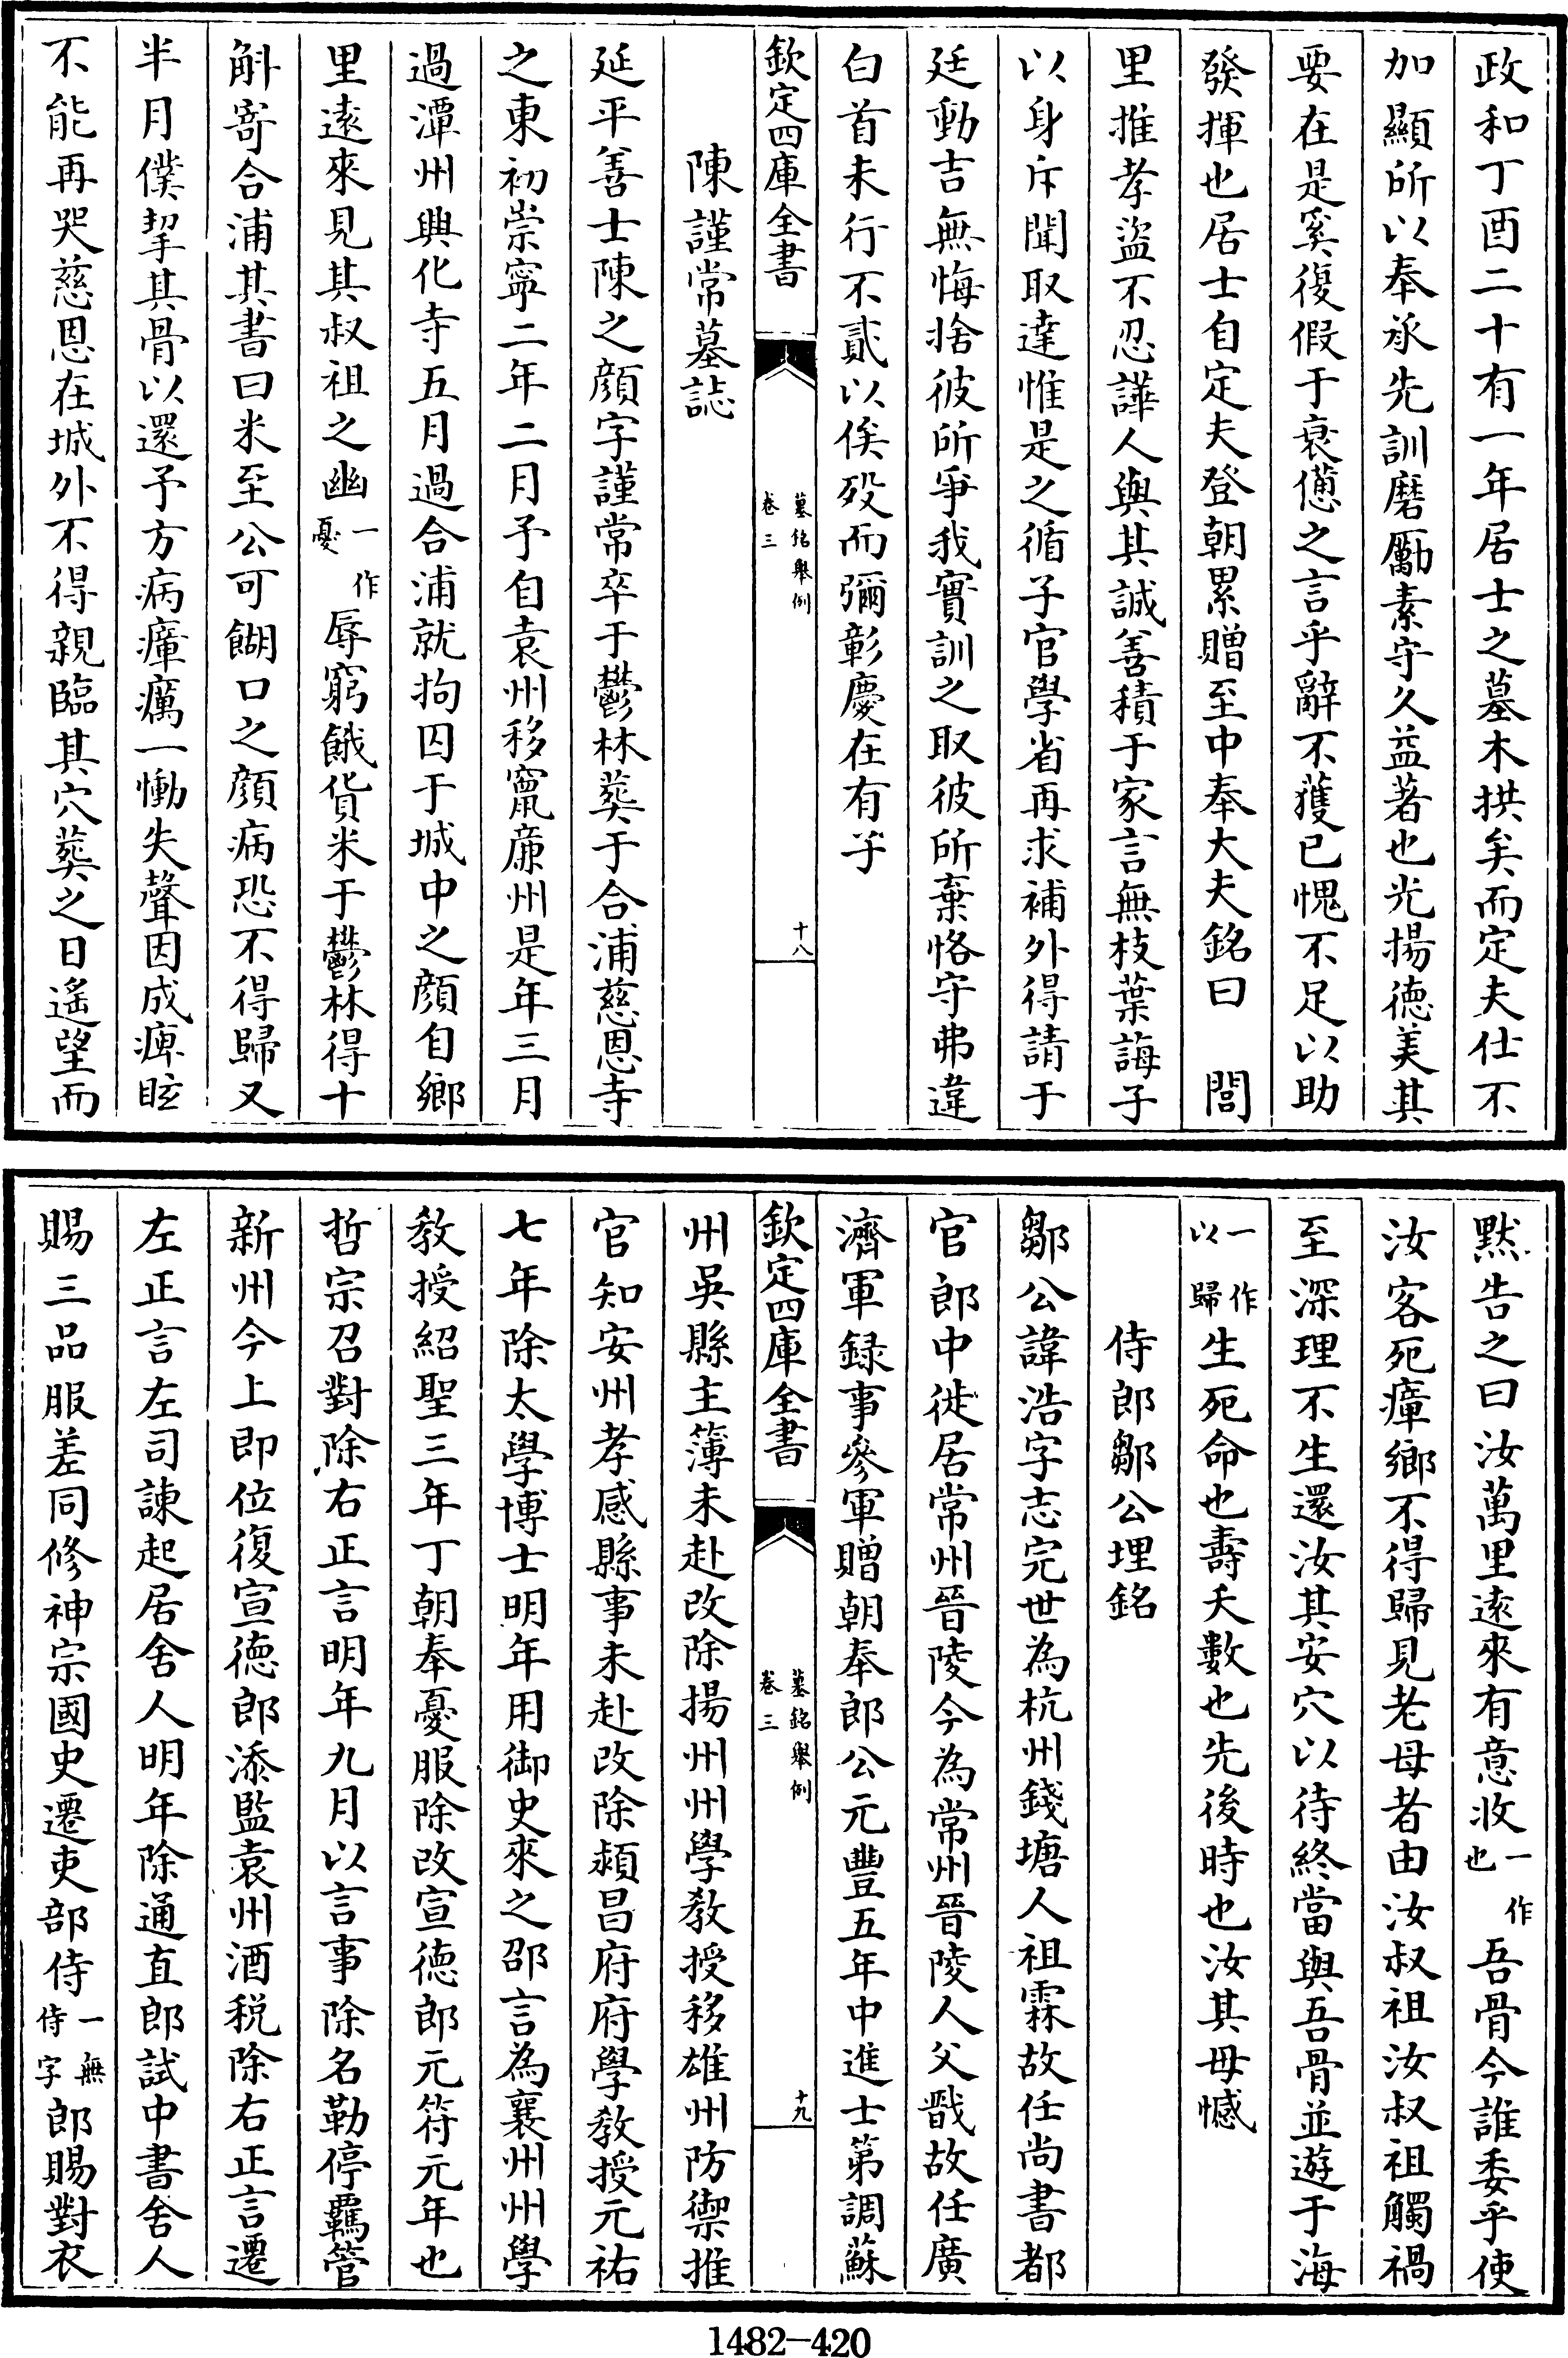 政和丁酉二十有一年居士之墓木拱矣而定夫仕不
加顯所以奉承先訓磨勵素守久益著也光揚德美其
要在是奚復假于衰憊之言乎辭不獲已愧不足以助
發揮也居士自定夫登朝累贈至中奉大夫銘曰　閭
里推孝盜不忍譁人與其誠善積于家言無枝葉誨子
以身斥聞取達惟是之循子官學省再求補外得請于
廷動吉無悔捨彼所爭我實訓之取彼所棄恪守弗違
白首未行不貳以俟殁而彌彰慶在有子
欽定四庫全書
墓銘舉例
卷三
十八
陳謹常墓誌
延平善士陳之顏字謹常卒于鬱林葬于合浦慈恩寺
之東初崇寧二年二月予自袁州移竄廉州是年三月
過潭州興化寺五月過合浦就拘囚于城中之顏自鄉
里遠來見其叔祖之幽一作憂辱窮餓貨米于鬱林得十
斛寄合浦其書曰米至公可餬口之顏病恐不得歸又
半月僕挈其骨以還予方病瘴癘一慟失聲因成痺眩
不能再哭慈恩在城外不得親臨其穴葬之日遙望而
默告之曰汝萬里遠來有意收一作也吾骨今誰委乎使
汝客死瘴鄉不得歸見老母者由汝叔祖汝叔祖觸禍
至深理不生還汝其安穴以待終當與吾骨並遊于海
一作以歸生死命也壽夭數也先後時也汝其毋憾
侍郎鄒公埋銘
鄒公諱浩字志完世為杭州錢塘人祖霖故任尚書都
官郎中徙居常州晉陵今為常州晉陵人父戩故任廣
濟軍録事參軍贈朝奉郎公元豐五年中進士第調蘇
欽定四庫全書
墓銘舉例
卷三
十九
州吳縣主簿未赴改除揚州州學教授移雄州防禦推
官知安州孝感縣事未赴改除潁昌府府學教授元祐
七年除太學博士明年用御史來之邵言為襄州州學
教授紹聖三年丁朝奉憂服除改宣德郎元符元年也
哲宗召對除右正言明年九月以言事除名勒停羈管
新州今上即位復宣德郎添監袁州酒税除右正言遷
左正言左司諫起居舍人明年除通直郎試中書舍人
賜三品服差同修神宗國史遷吏部侍一無侍字郎賜對衣
1482-420